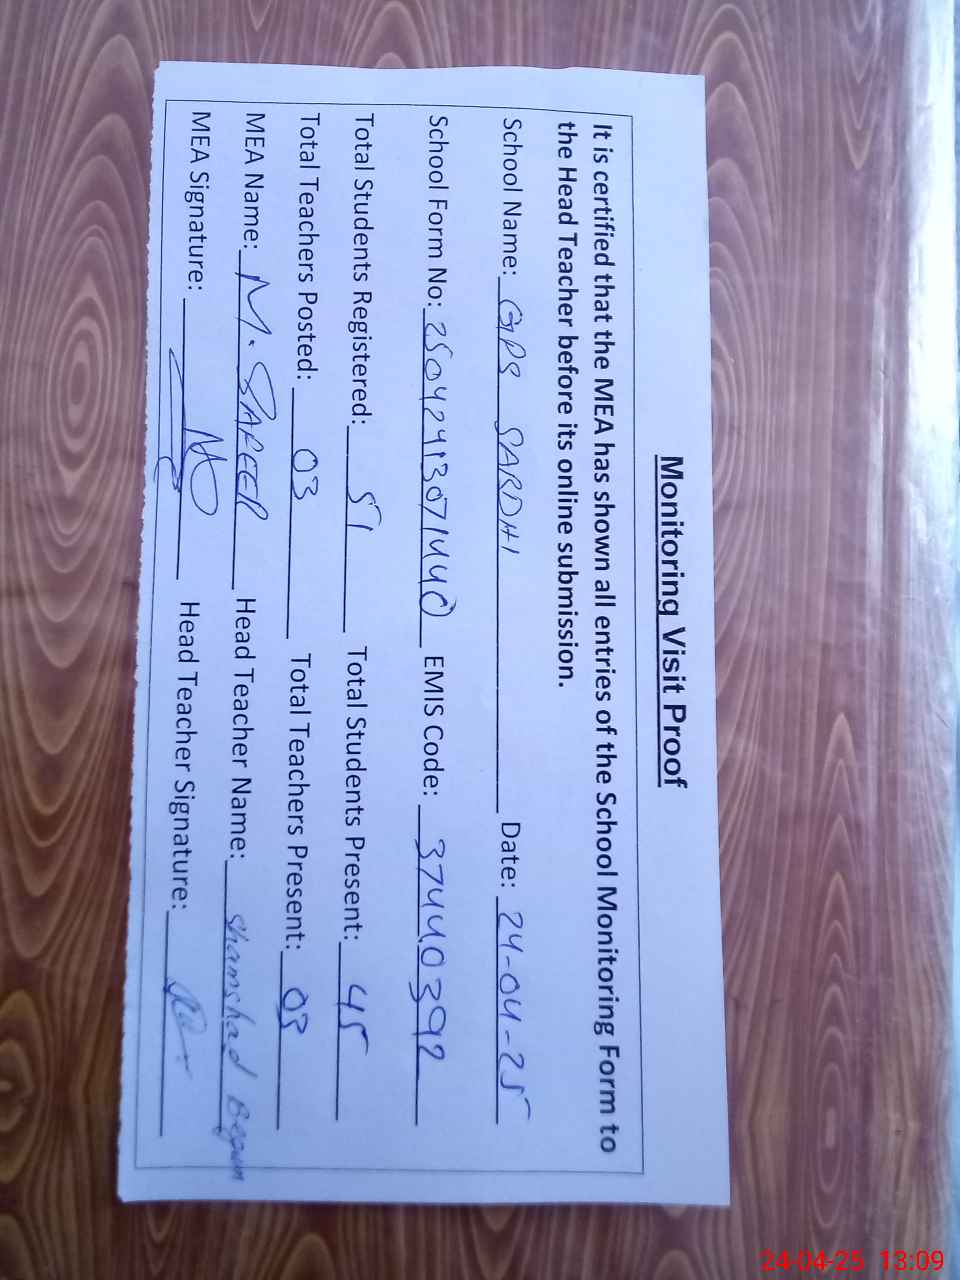 Monitoring Visit Proof
It is certified that the MEA has shown all entries of the School Monitoring Form to
the Head Teacher before its online submission.
School Name: GPS SARDHI Date: 24-04-25
School Form No: 25042413071440 EMIS Code: 37440392
Total Students Registered: 51 Total Students Present: 45
Total Teachers Posted: 03 Total Teachers Present: 03
MEA Name: M. SAFEER Head Teacher Name: Shamshad Begum
MEA Signature: Head Teacher Signature:
24-04-25 13:09